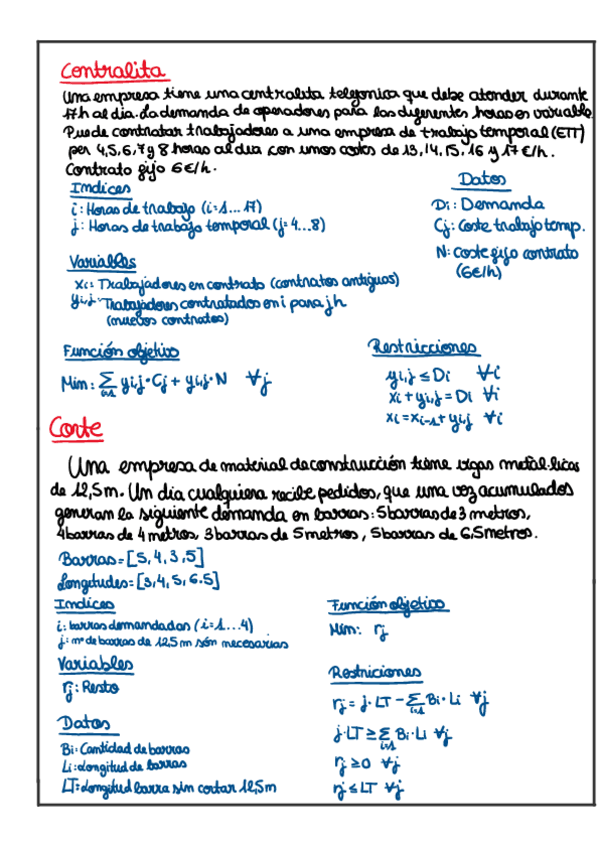 Centralita
Una empresa tiene una centralita telefonica que debe atender durante
17h al dia. La demanda de operadores para las diferentes horas es variable.
Puede contratar trabajadores a una empresa de trabajo temporal (ETT)
per 4,5,6,7 y 8 horas al dia con unos costes de 13, 14, 15, 16 y 17 €/h.
Contrato fijo 6€/h.
Indices
i: Horas de trabajo (i=1...17)
j: Horas de trabajo temporal (j=4...8)
Datos
Di: Demanda
Cj: Coste trabajo temp.
N: coste fijo contrato
(6€/h)
Variables
xi: Trabajadores en contrato (contratos antiguos)
yi,j: Trabajadores contratados en i para j h
(nuevos contratos)
Función objetivo
Min: Σ i=1 yi,j·Cj + yi,j·N ∀j
Restricciones
yi,j ≤ Di ∀i
xi + yi,j = Di ∀i
xi = xi-1 + yi,j ∀i
Corte
Una empresa de material de construcción tiene vigas metál·licas
de 12,5m. Un dia cualquiera recibe pedidos, que una vez acumulados
generan la siguiente demanda en barras: 5 barras de 3 metros,
4 barras de 4 metros, 3 barras de 5 metros, 5 barras de 6,5 metros.
Barras=[5,4,3,5]
Longitudes=[3,4,5,6.5]
Indices
i: barras demandadas (i=1...4)
j: nº de barras de 12,5 m són necesarias
Variables
rj: Resto
Datos
Bi: Cantidad de barras
Li: Longitud de barras
LT: Longitud barra sin cortar 12,5m
Función objetivo
Min: rj
Restriciones
rj = j·LT - Σ i=1 Bi·Li ∀j
j·LT ≥ Σ i=1 Bi·Li ∀j
rj ≥ 0 ∀j
rj ≤ LT ∀j